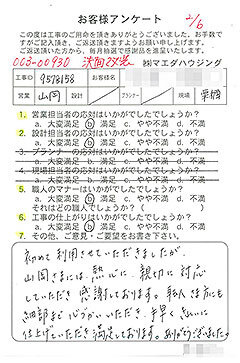 お客様アンケート 2/6
この度は工事のご用命を頂きありがとうございました。お手数で
すがご記入頂き、ご返送頂きますようお願い申し上げます。
ご返送頂いた方から、毎月抽選で感謝品を進呈いたします。
㈱マエダハウジング
工事ID 9576158 お客様名
営業 山岡 設計 プランナー 現場
1. 営業担当者の応対はいかがでしたでしょうか?
a. 大変満足 b. 満足 c. やや不満 d. 不満
2. 設計担当者の応対はいかがでしたでしょうか?
a. 大変満足 b. 満足 c. やや不満 d. 不満
3. プランナーの応対はいかがでしたでしょうか?
a. 大変満足 b. 満足 c. やや不満 d. 不満
4. 現場担当者の応対はいかがでしたでしょうか?
a. 大変満足 b. 満足 c. やや不満 d. 不満
5. 職人のマナーはいかがでしたでしょうか?
a. 大変満足 b. 満足 c. やや不満 d. 不満
それはどの職人でしょうか? ( )
6. 工事の仕上がりはいかがでしたでしょうか?
a. 大変満足 b. 満足 c. やや不満 d. 不満
7. その他、ご意見・ご要望をお書き下さい。
初めて利用させていただきましたが、
山岡さまには、熱心に、親切に対応
していただき感謝しております。職人さま方にも
細部まで心づかいいただき、手早くきれいに
仕上げていただき満足しております。ありがとうございました。